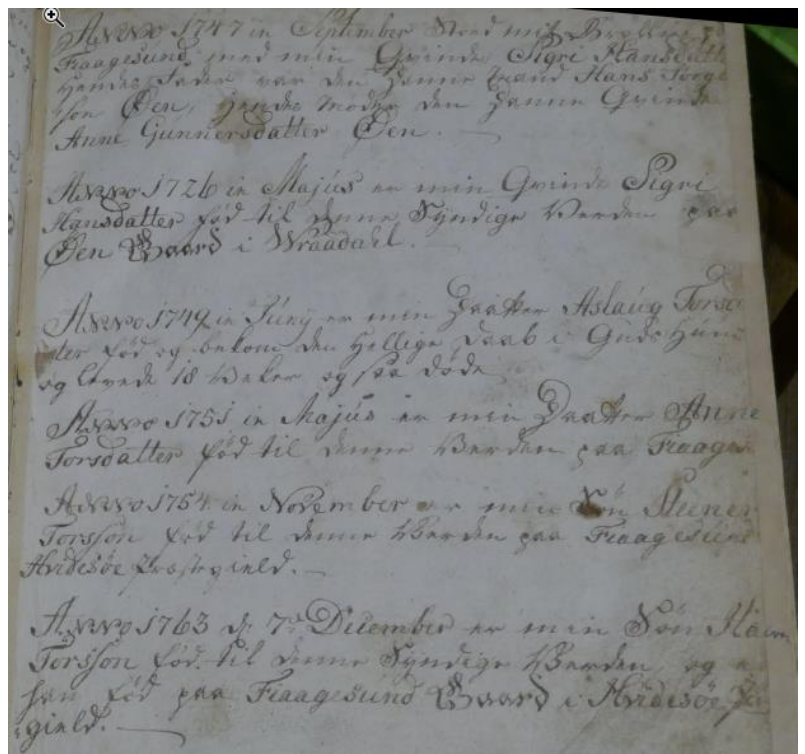 Anno 1747 in September Stoed mit Brøllup
Fraagesund med min Qvinde Sigri Hansdatt
hendes Fader var den Danne Mand Hans
Søn Øen, hendes Moder den Danne Qvinde
Anne Gunnersdatter Øen.
Anno 1726 in Majús er min Qvinde Sigri
Hansdatter fød til denne Syndige Verden paa
Øen Gaard i Wraadahl.
Anno 1749 in Júny er min Daatter Aslaúg Torsda
ter fød og bekom den hellige Daab i Guds Huus
og levede 18 Veker og saa døde
Anno 1751 in Majús er min Daatter Anne
Torsdatter fød til denne Verden paa Fraages
Anno 1754 in November er min Søn Steener
Torsson fød til denne Verden paa Fraagesund
Hvidesøe Præstegield.
Anno 1763 d. 7de December er min Søn
Torsson fød til denne Syndige Verden, og e
han fød paa Fraagesund Gaard i Hvidesøe
gield.